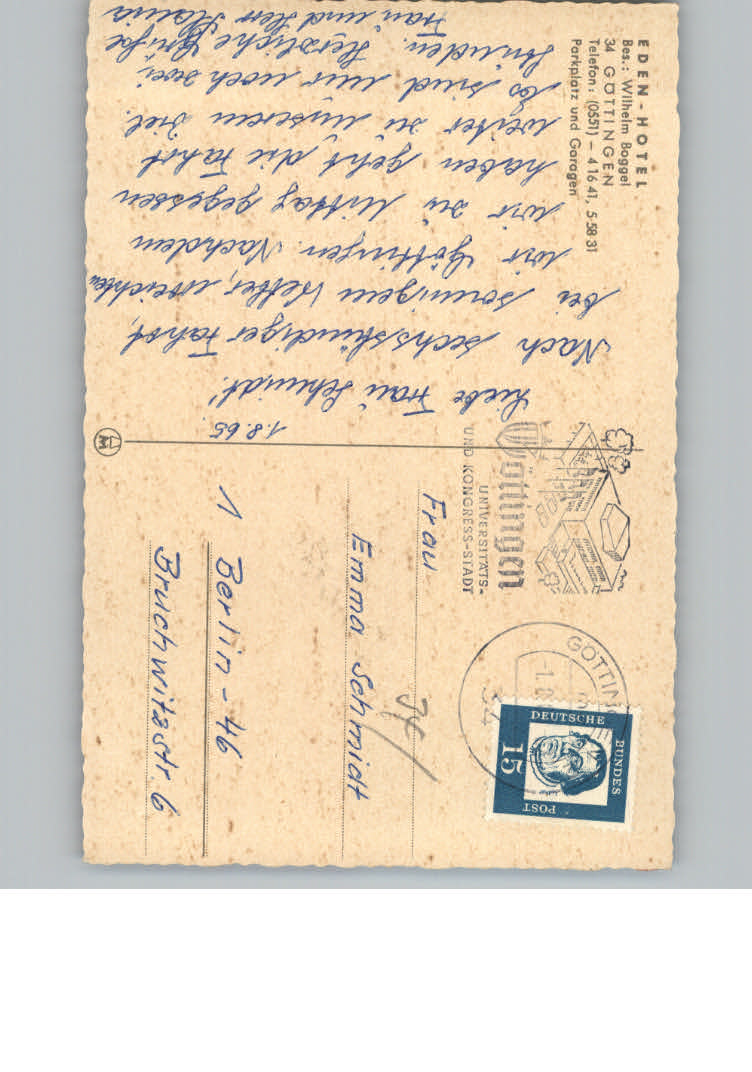 EDEN-HOTEL
Bes.: Wilhelm Boggel
34 GÖTTINGEN
Telefon: (0551) – 4 16 41, 5 58 31
Parkplatz und Garagen
1.8.65.
Liebe Frau Schmidt!
Nach sechsstündiger Fahrt,
bei sonnigem Wetter, erreichten
wir Göttingen. Nachdem
wir zu Mittag gegessen
haben geht die Fahrt
weiter zu unserem Ziel.
Es sind nur noch zwei
Stunden. Herzliche Grüße
Frau und Herr
Göttingen
UNIVERSITÄTS-
UND KONGRESS-STADT
GÖTTINGEN
34
DEUTSCHE
BUNDES
POST
15
Frau
Emma Schmidt
1 Berlin-46
Bruchwitzstr. 6